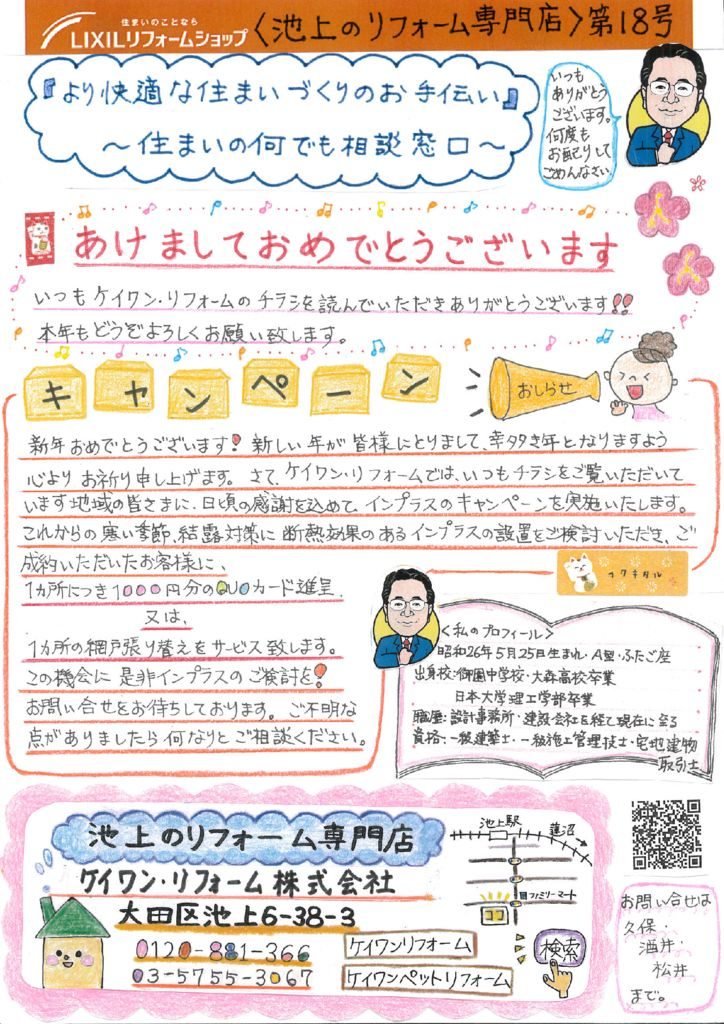 住まいのことなら
LIXILリフォームショップ
〈池上のリフォーム専門店〉第18号
『より快適な住まいづくりのお手伝い』
～住まいの何でも相談窓口～
いつも
ありがとう
ございます。
何度も
お配りして
ごめんなさい。
あけましておめでとうございます
いつもケイワン・リフォームのチラシを読んでいただきありがとうございます!!
本年もどうぞよろしくお願い致します。
キャンペーン
おしらせ
新年おめでとうございます!新しい年が皆様にとりまして、幸多き年となりますよう
心よりお祈り申し上げます。さて、ケイワン・リフォームでは、いつもチラシをご覧いただいて
います地域の皆さまに、日頃の感謝を込めて、インプラスのキャンペーンを実施いたします。
これからの寒い季節、結露対策に断熱効果のあるインプラスの設置をご検討いただき、ご
成約いただいたお客様に、
1カ所につき1000円分のQUOカード進呈、
又は、
1カ所の網戸張り替えをサービス致します。
この機会に是非インプラスのご検討を!
お問い合せをお待ちしております。ご不明な
点がありましたら何なりとご相談ください。
フクキタル
〈私のプロフィール〉
昭和26年5月25日生まれ・A型・ふたご座
出身校:御園中学校・大森高校卒業
日本大学理工学部卒業
職歴:設計事務所・建設会社を経て現在に至る
資格:一級建築士・一級施工管理技士・宅地建物
取引士
池上のリフォーム専門店
ケイワン・リフォーム株式会社
大田区池上6-38-3
0120-881-366
03-5755-3067
ケイワンリフォーム
ケイワンペットリフォーム
検索
池上駅
蓮沼
ファミリーマート
お問い合せは
久保・
酒井・
松井
まで。